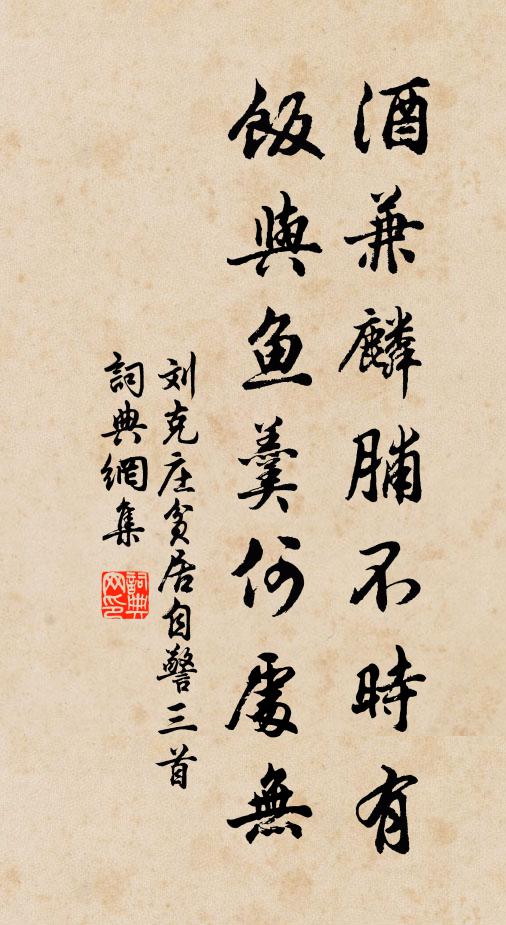 酒兼麟脯不時有
飯與魚羹何處無
刘克庄贫居自警三首
詞典網集
詞典网印